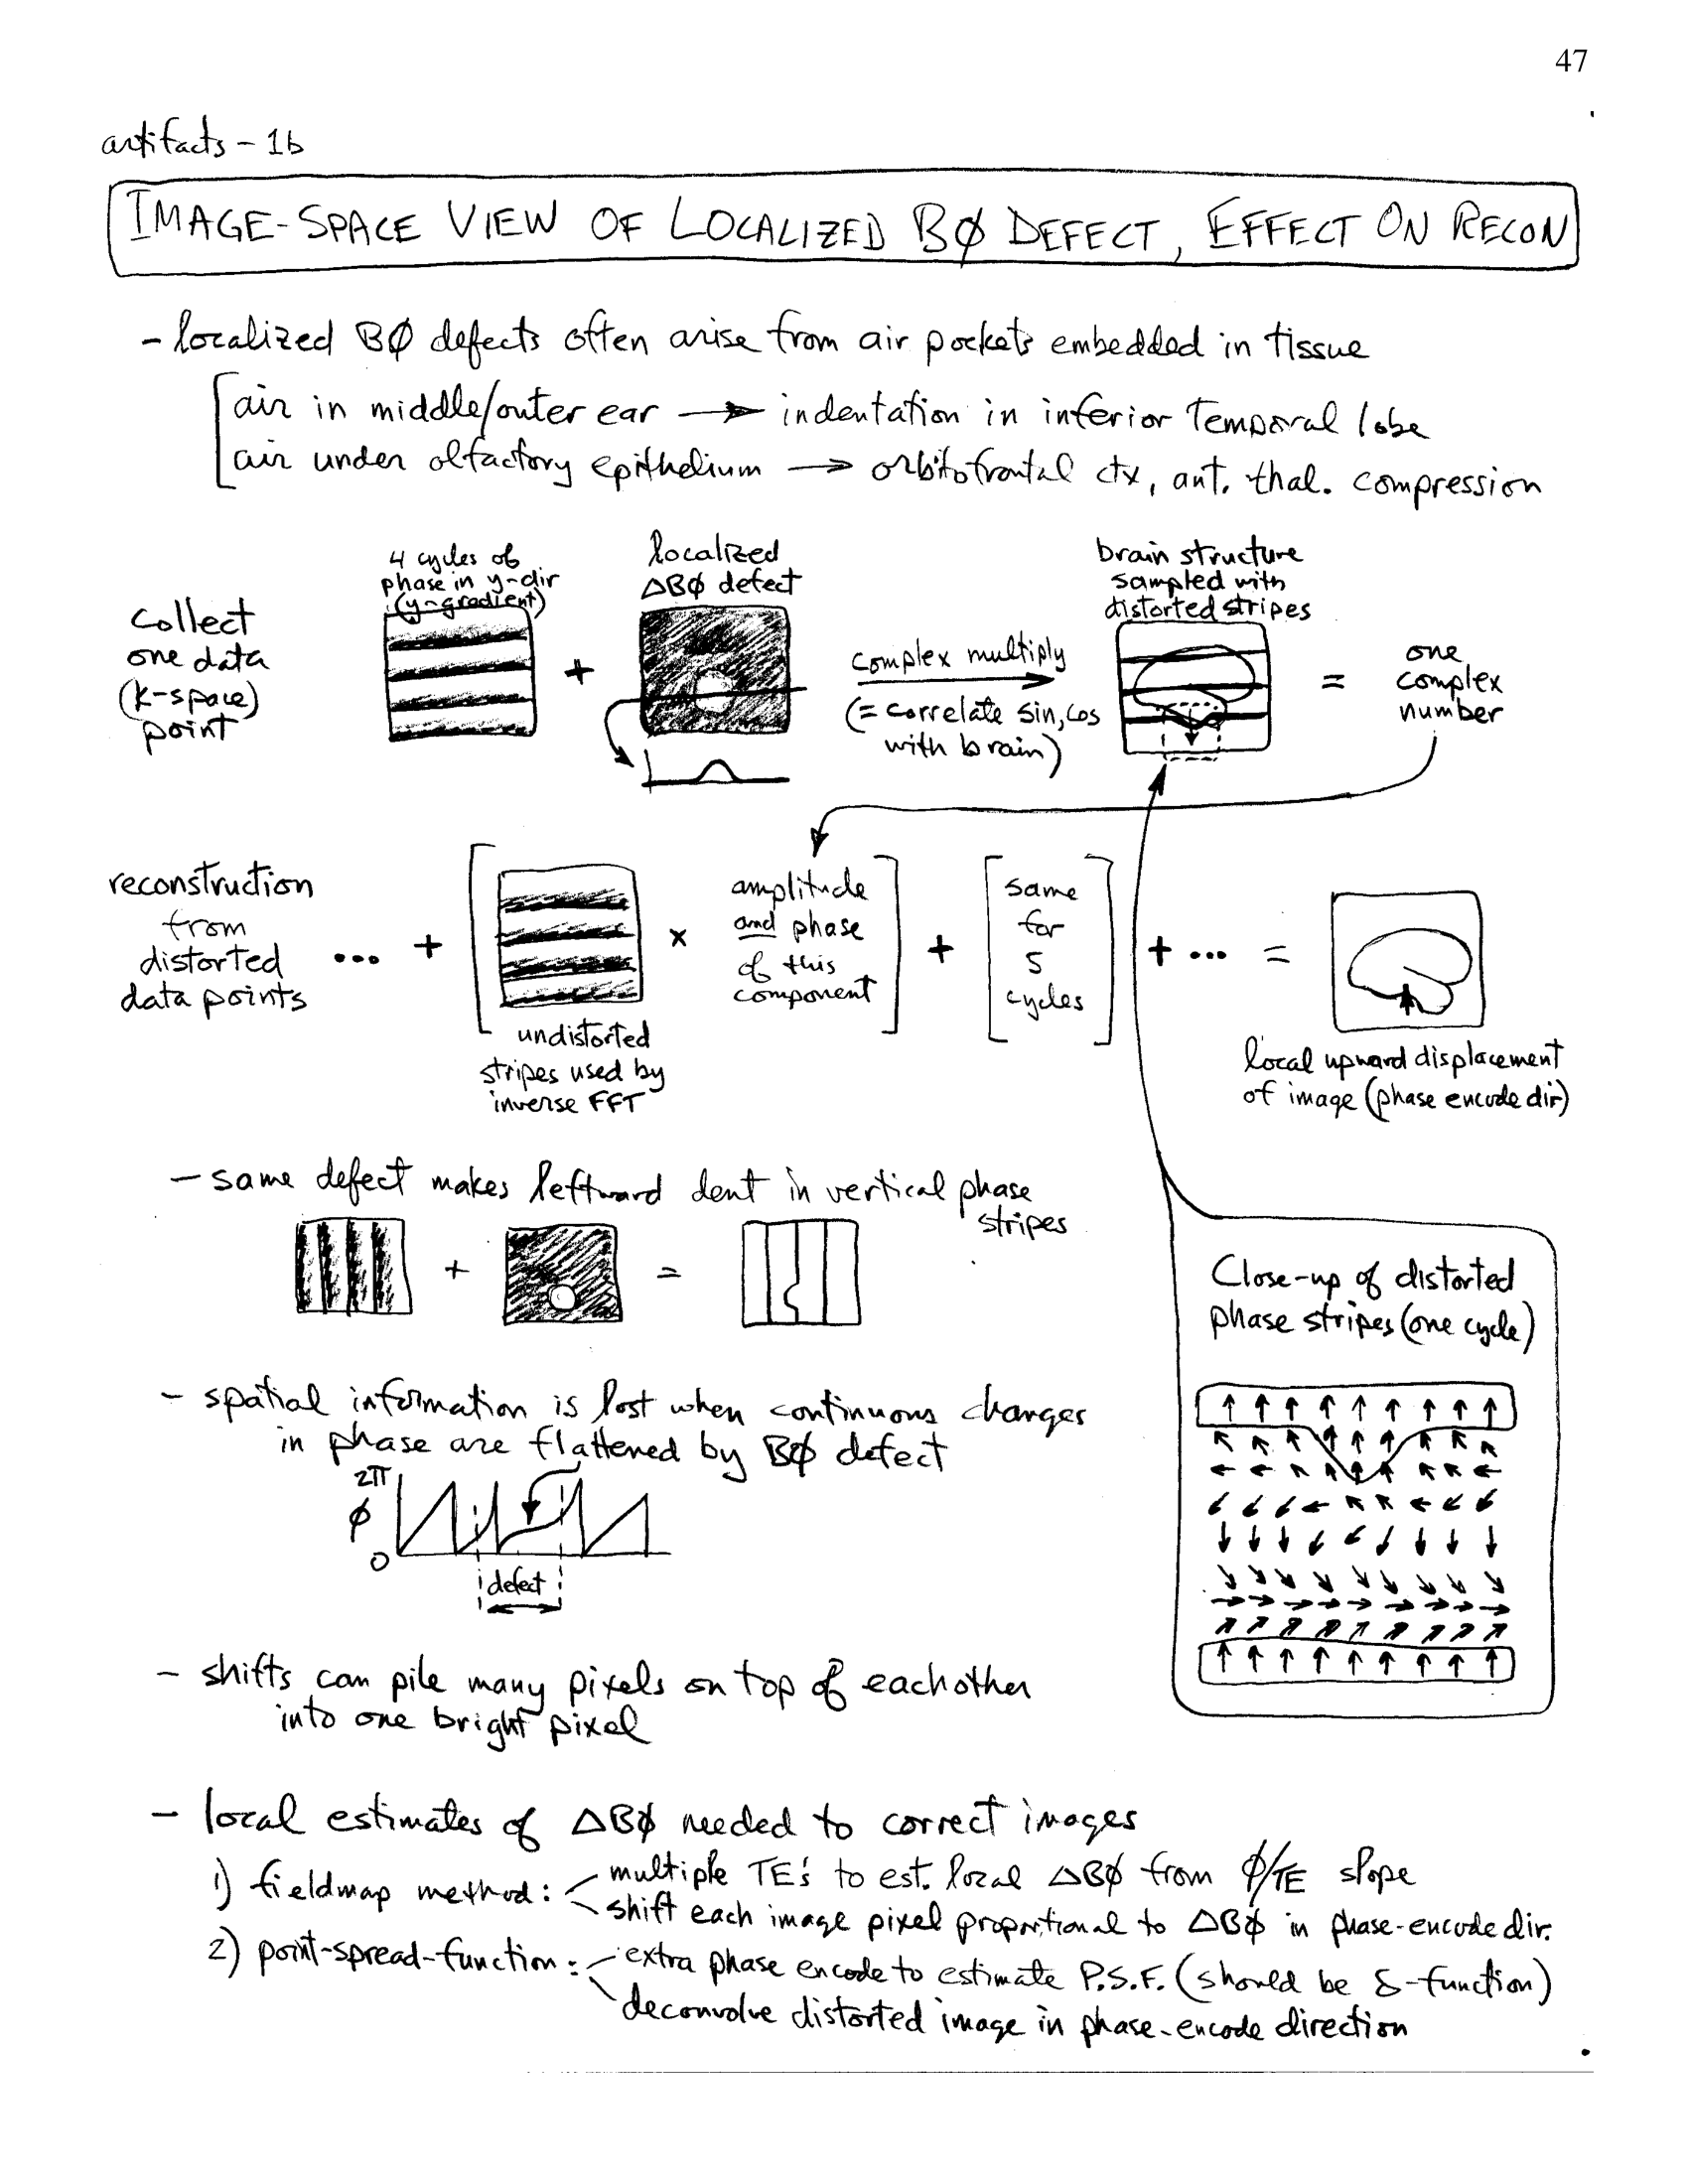 47
artifacts - 1b
IMAGE-SPACE VIEW OF LOCALIZED BØ DEFECT, EFFECT ON RECON
- localized BØ defects often arise from air pockets embedded in tissue
air in middle/outer ear → indentation in inferior temporal lobe
air under olfactory epithelium → orbitofrontal ctx, ant. thal. compression
collect
one data
(k-space)
point
4 cycles of
phase in y-dir
(y-gradient)
+
localized
ΔBØ defect
complex multiply
(= correlate sin, cos
with brain)
brain structure
sampled with
distorted stripes
=
one
complex
number
reconstruction
from
distorted
data points
... +
undistorted
stripes used by
inverse FFT
x
amplitude
and phase
of this
component
+
same
for
5
cycles
+ ... =
local upward displacement
of image (phase encode dir)
- same defect makes leftward dent in vertical phase
stripes
+ =
Close-up of distorted
phase stripes (one cycle)
- spatial information is lost when continuous changes
in phase are flattened by BØ defect
2π
ϕ
0
defect
- shifts can pile many pixels on top of each other
into one bright pixel
- local estimates of ΔBØ needed to correct images
1) fieldmap method: multiple TE's to est. local ΔBØ from ϕ/TE slope
shift each image pixel proportional to ΔBØ in phase-encode dir.
2) point-spread-function: extra phase encode to estimate P.S.F. (should be δ-function)
deconvolve distorted image in phase-encode direction